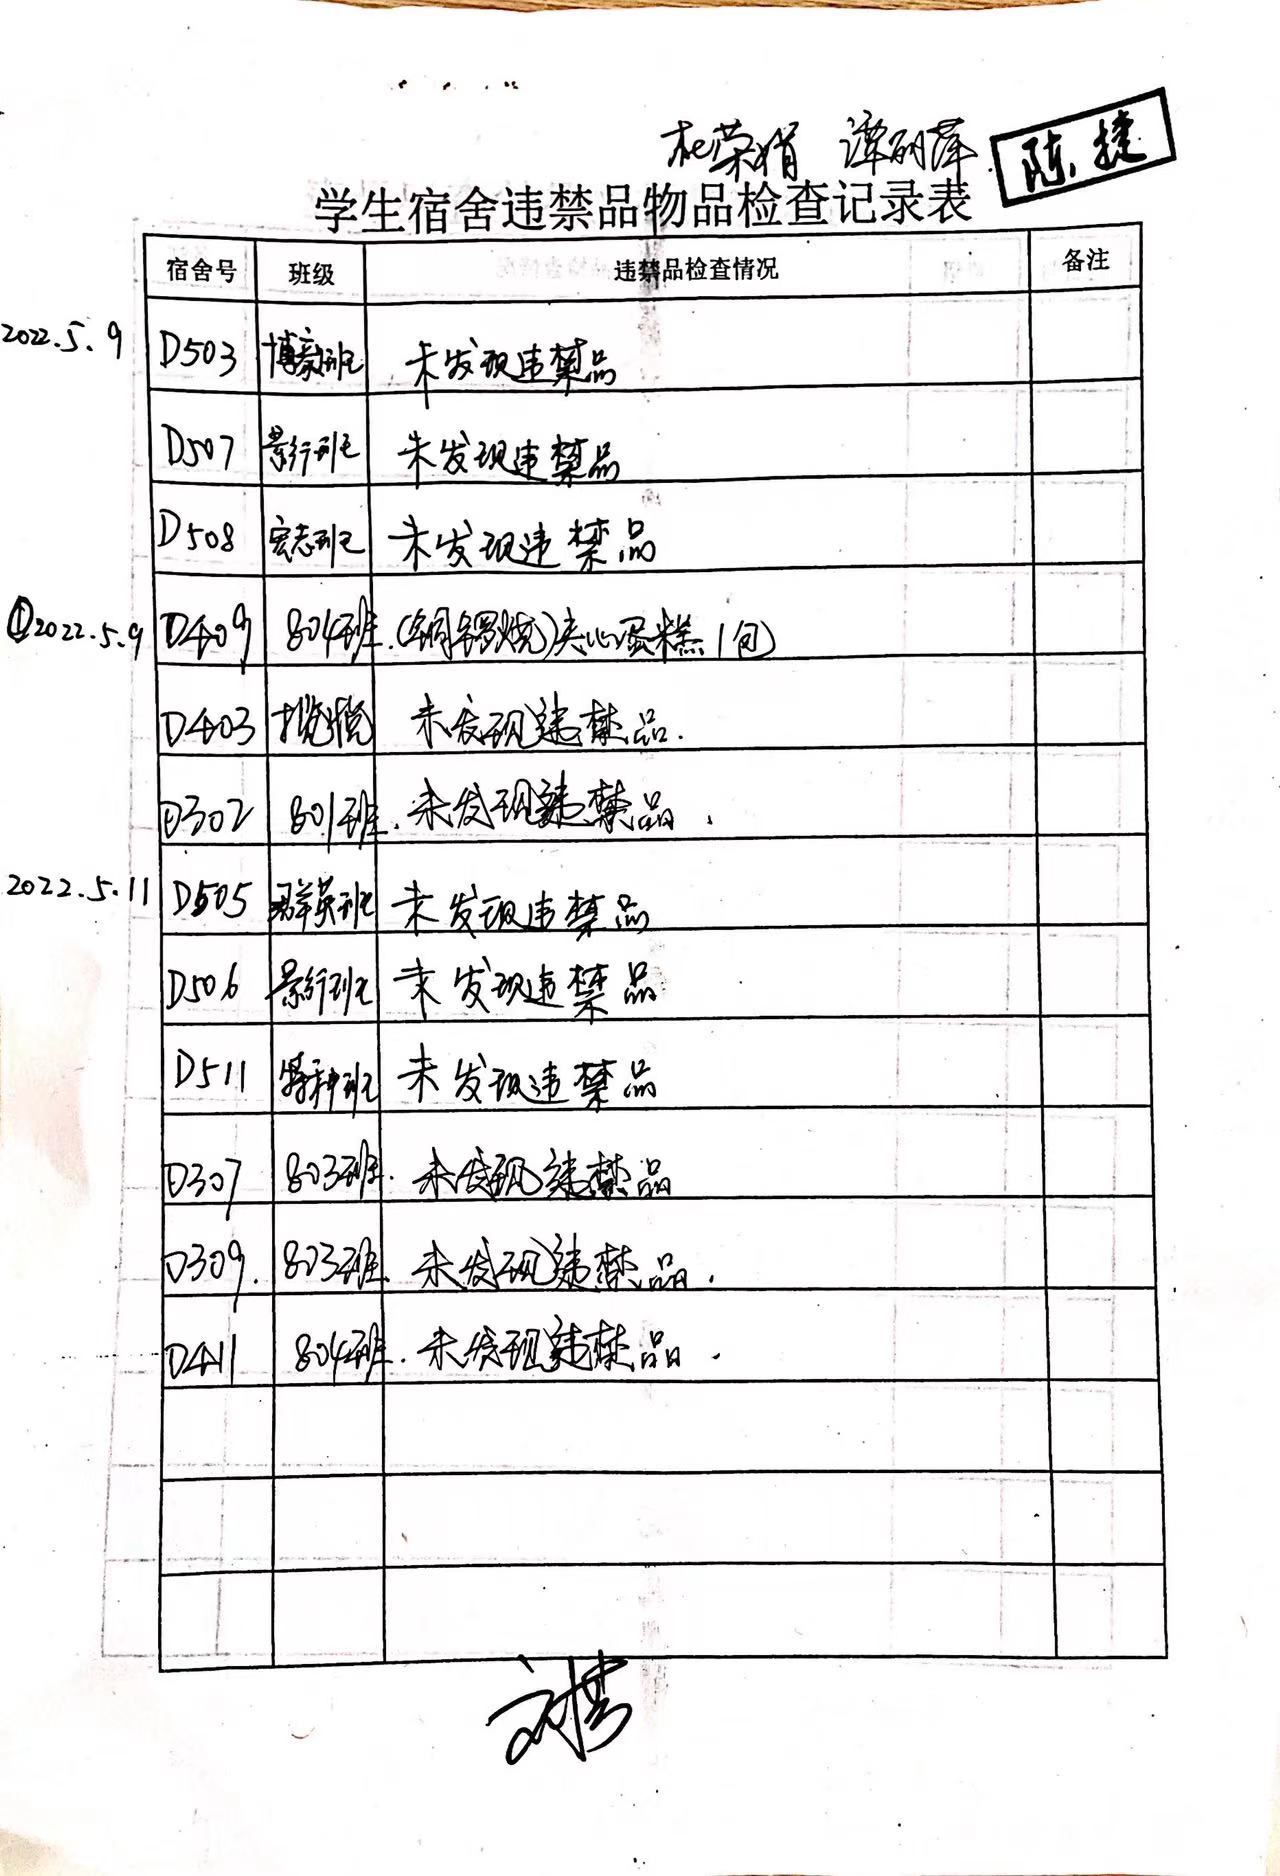 杜荣娟 谭丽萍 陈捷
学生宿舍违禁品物品检查记录表
宿舍号 班级 违禁品检查情况 备注
2022.5.9 D503 博豪班 未发现违禁品
D507 景行班 未发现违禁品
D508 宏志班 未发现违禁品
①2022.5.9 D409 804班.(铜锣烧)夹心蛋糕1包
D403 未发现违禁品.
D302 801班.未发现违禁品.
2022.5.11 D505 群英班 未发现违禁品
D506 景行班 未发现违禁品
D511 特种班 未发现违禁品
D307 803班.未发现违禁品
D309. 803班.未发现违禁品.
D411 804班.未发现违禁品.